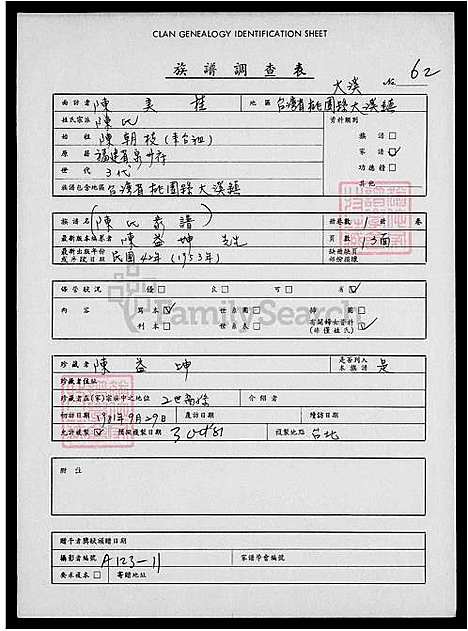 CLAN GENEALOGY IDENTIFICATION SHEET
族譜調查表
大溪 No. 62
面訪者 陳美桂 地區 台灣省桃園縣大溪鎮
姓氏宗派 陳氏 資料類別
始祖 陳朝枝(來台祖) 族譜□
原籍 福建省泉州府 家譜☑
世代 3代 功德譜□
族譜包含地區 台灣省桃園縣大溪鎮 其他
族譜名 (陳氏家譜) 冊卷數 1冊 卷
最新版本編纂者 陳益坤 先生 頁數 13面
最新出版年份或片段日期 民國42年(1953年) 缺冊缺頁部份摘錄
保管狀況 優□ 良□ 可□ 劣☑
內容 寫本☑ 世系表□ 掃圖□
刊本□ 世系圖□ 有關婦女資料(非僅姓氏)☑
FamilySearch
珍藏者 陳益坤 是否列入本族譜 是
珍藏者住址
珍藏者在(家)宗族中之地位 2世裔孫 介紹者
初訪日期 1981年9月29日 覆訪日期 續訪日期
允許複製☑ 預擬複製日期 3 Oct 81 複製地點 台北
附註
贈予者獎狀頒贈日期
攝影者編號 A123-11 家譜學會編號
要求複本□ 寄贈地址